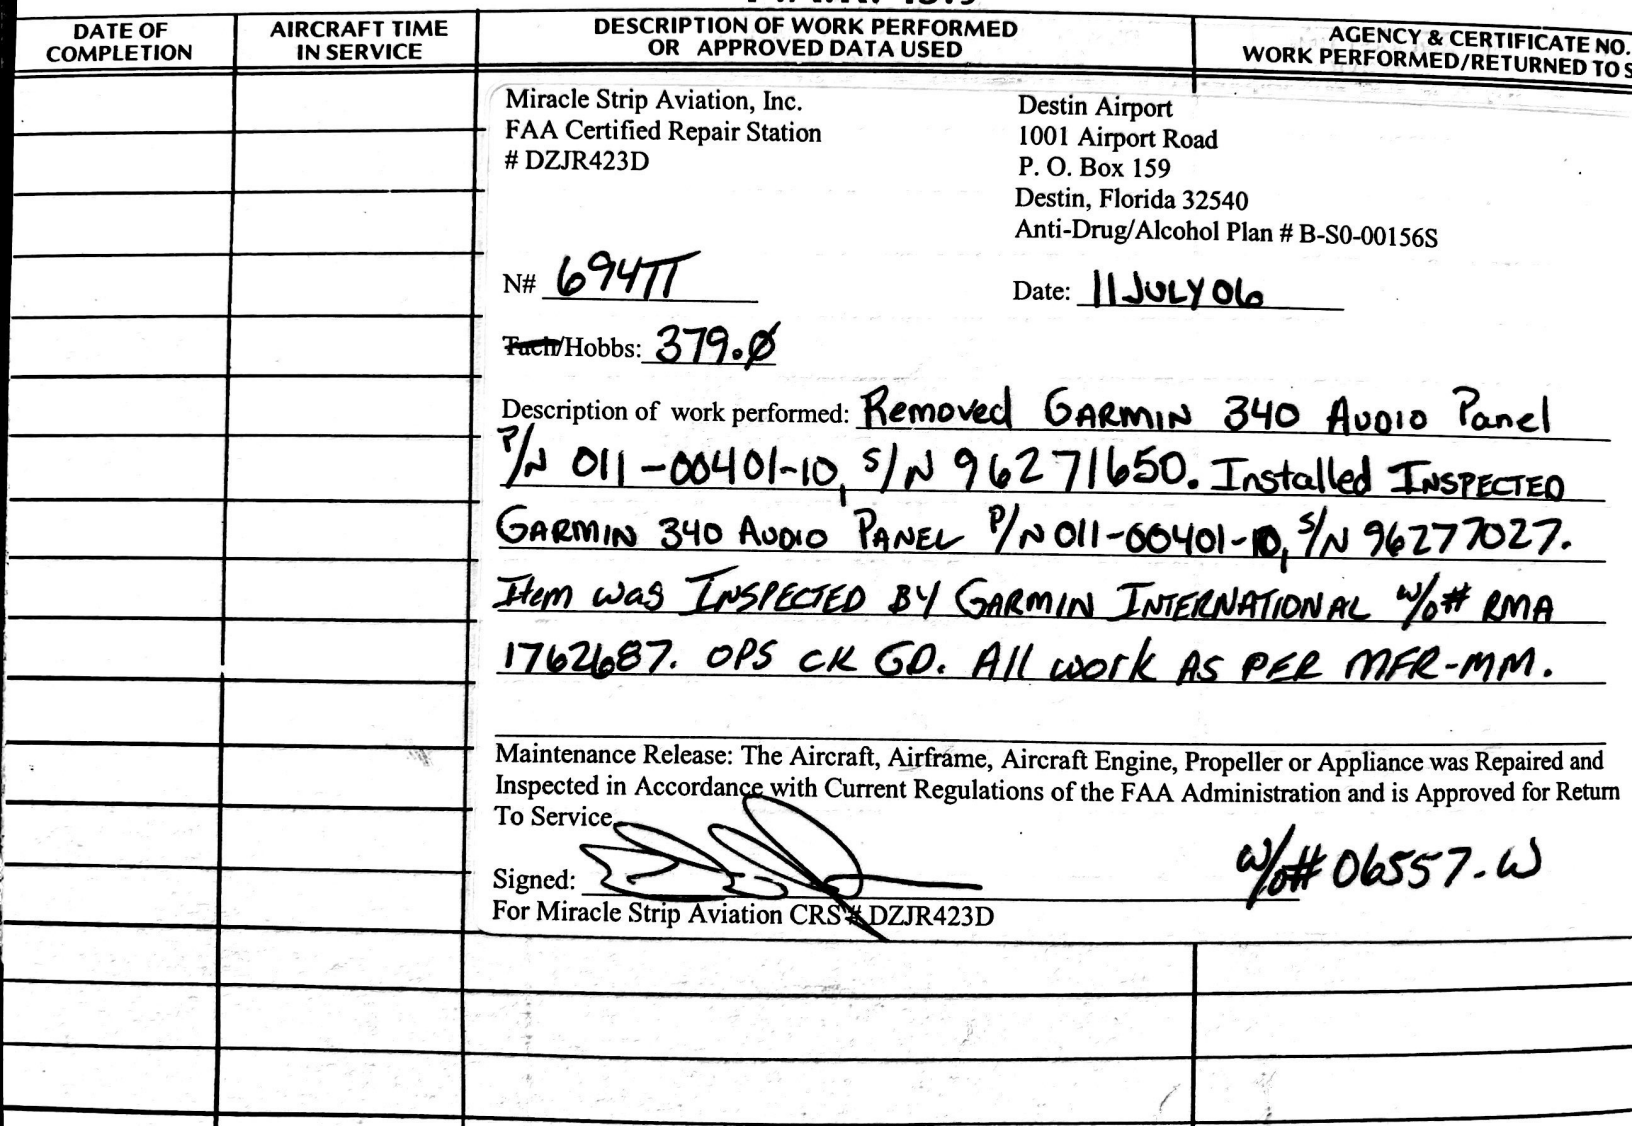 DATE OF
COMPLETION
AIRCRAFT TIME
IN SERVICE
DESCRIPTION OF WORK PERFORMED
OR APPROVED DATA USED
AGENCY & CERTIFICATE NO.
WORK PERFORMED/RETURNED TO S
Miracle Strip Aviation, Inc.
FAA Certified Repair Station
# DZJR423D
Destin Airport
1001 Airport Road
P. O. Box 159
Destin, Florida 32540
Anti-Drug/Alcohol Plan # B-S0-00156S
N# 694TT
Date: 11 JULY 06
Tach/Hobbs: 379.0
Description of work performed: Removed GARMIN 340 AUDIO Panel
P/N 011-00401-10, S/N 96271650. Installed INSPECTED
GARMIN 340 AUDIO PANEL P/N 011-00401-10, S/N 96277027.
Item was INSPECTED BY GARMIN INTERNATIONAL W/O# RMA
1762687. OPS CK GD. All work AS PER MFR-MM.
Maintenance Release: The Aircraft, Airframe, Aircraft Engine, Propeller or Appliance was Repaired and
Inspected in Accordance with Current Regulations of the FAA Administration and is Approved for Return
To Service
Signed:
W/O# 06557-W
For Miracle Strip Aviation CRS # DZJR423D